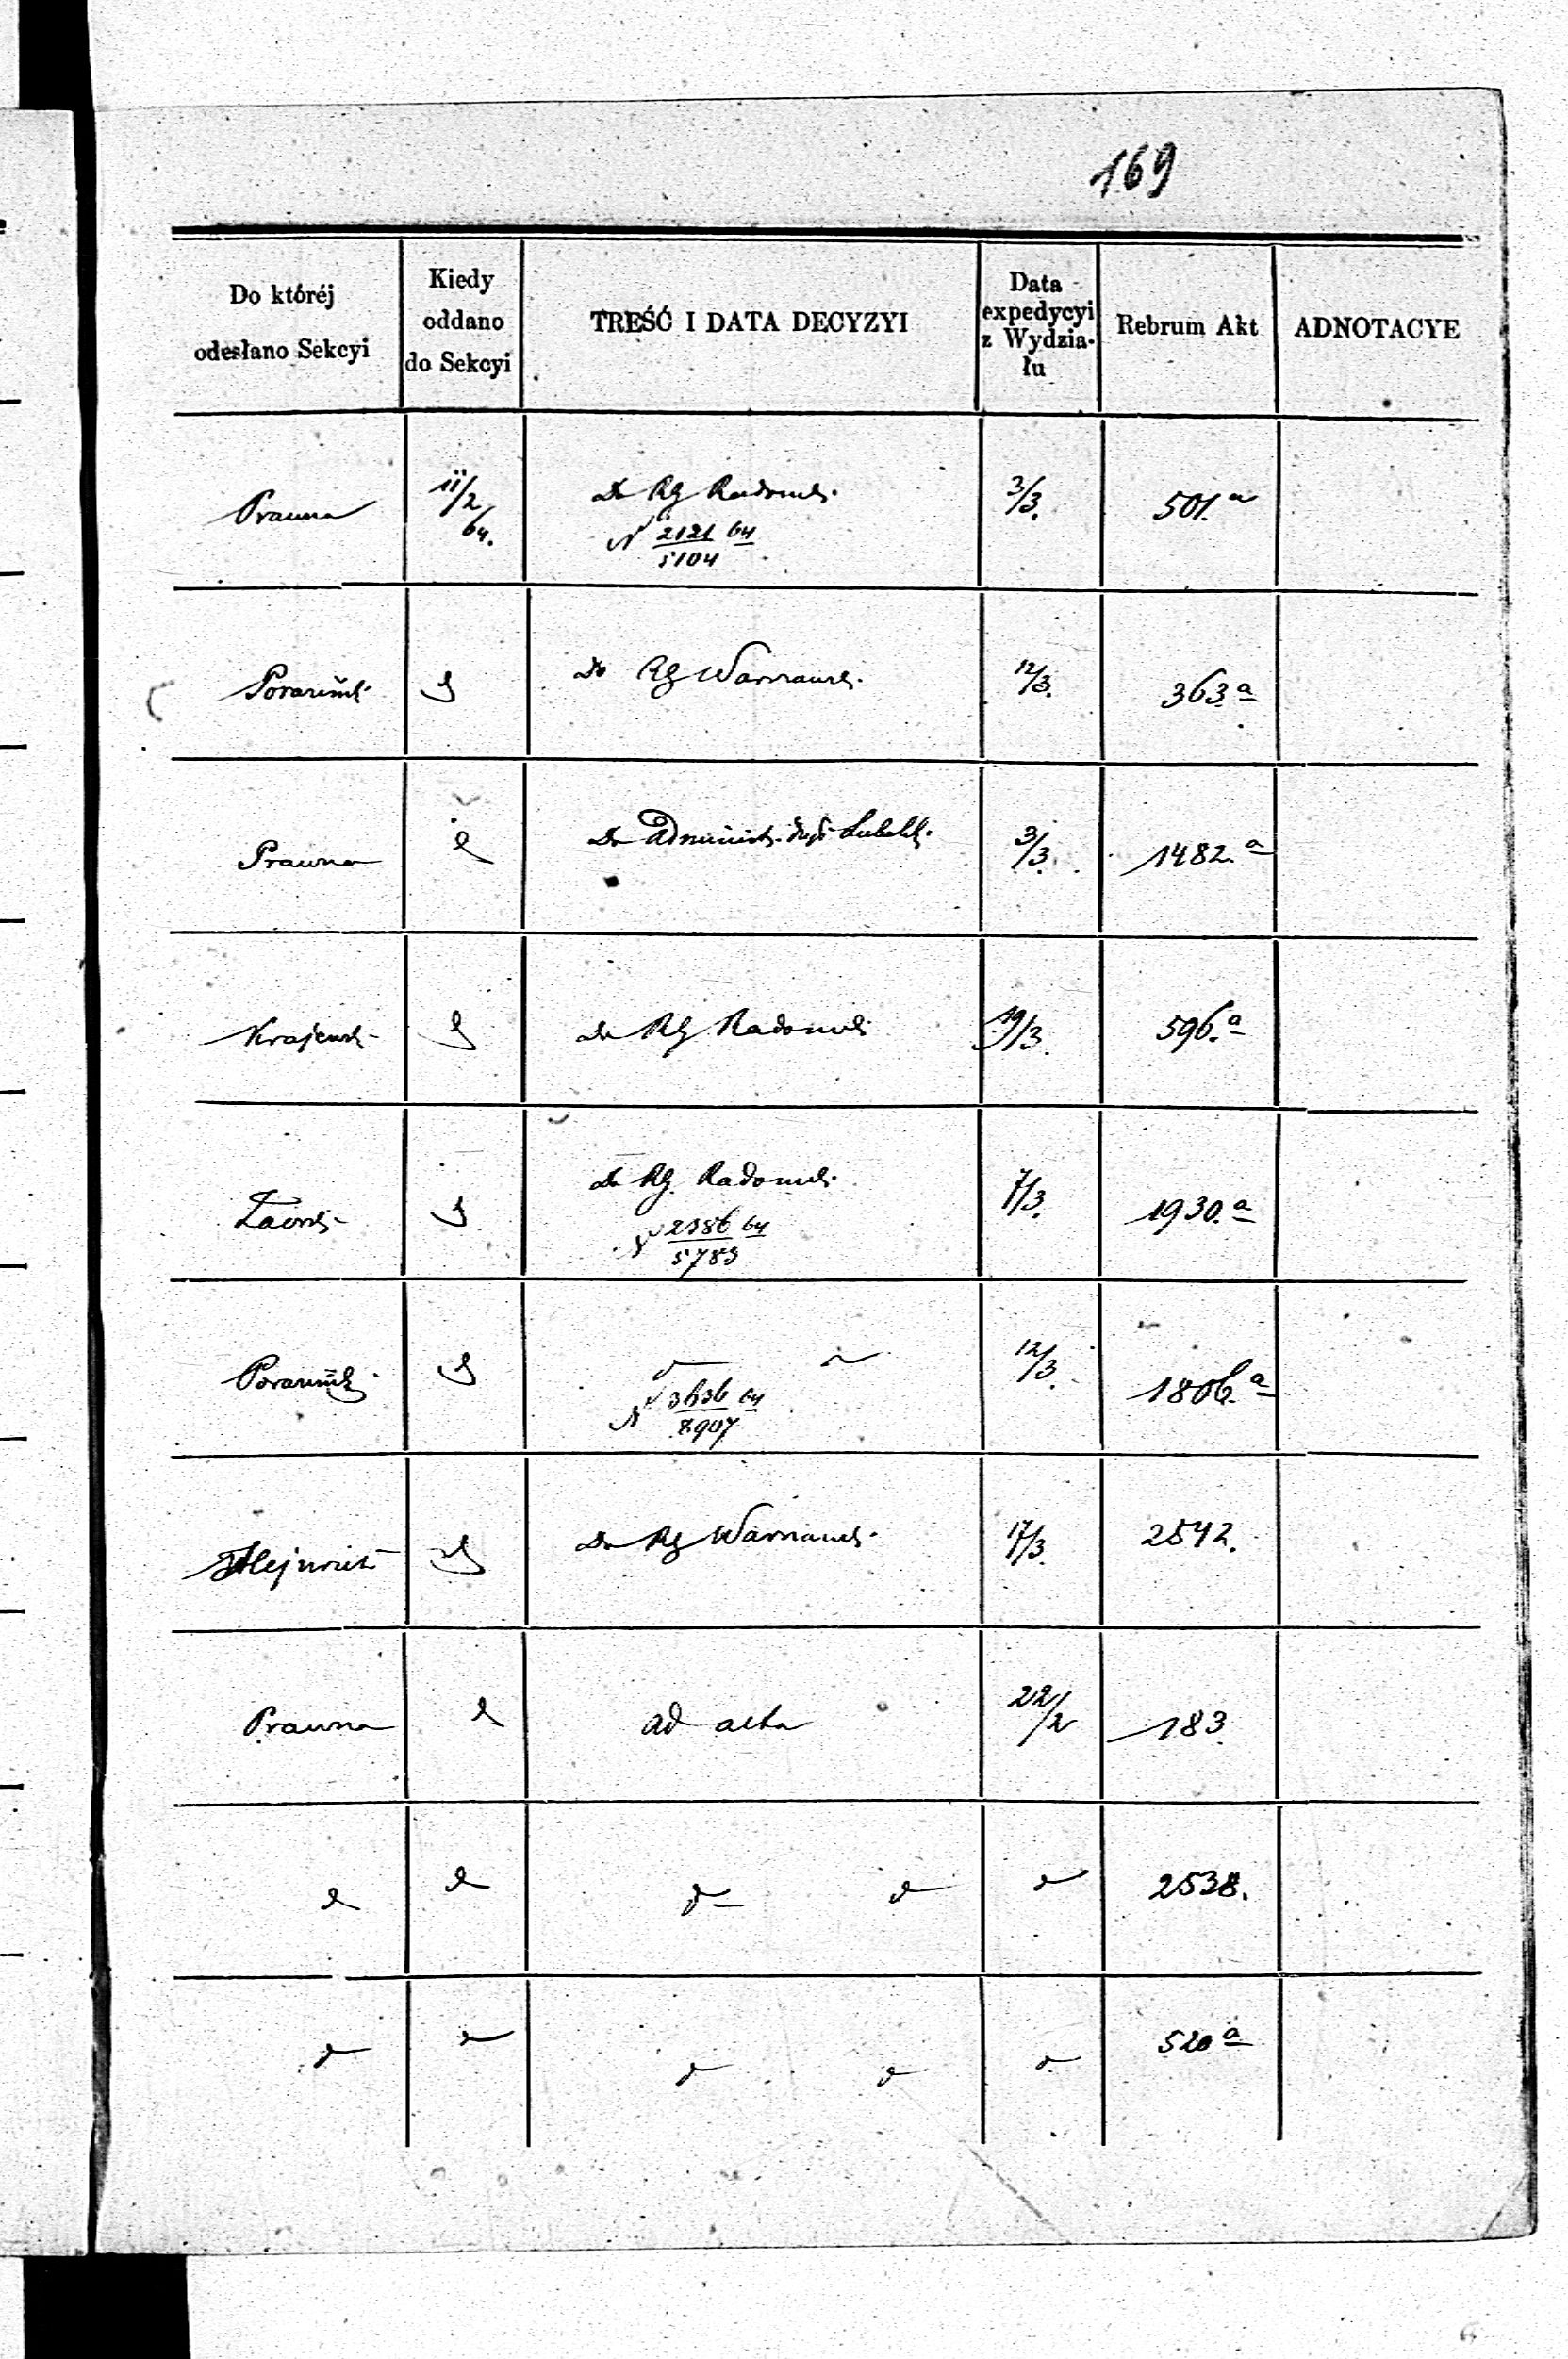 169
Do któréj
odesłano Sekcyi
Kiedy
oddano
do Sekcyi
TREŚĆ I DATA DECYZYI
Data
expedycyi
z Wydzia-
łu
Rebrum Akt
ADNOTACYE
Prawna
11/2
64.
Do RG Radoms.
N 2121 64
5104
3/3.
501.a
Do RG Warszaws.
12/3.
363.a
Prawna
Do Administr. Lubels.
3/3.
1482.a
Krajews-
Do RG Radoms.
19/3.
596.a
Do RG Radoms.
N 2386 64
5783
7/3.
1930.a
N 3636 64
8907
12/3.
1806.a
Do RG Warszaws.
17/3.
2542.
Prawna
ad acta
22/2
183
2538.
520 a